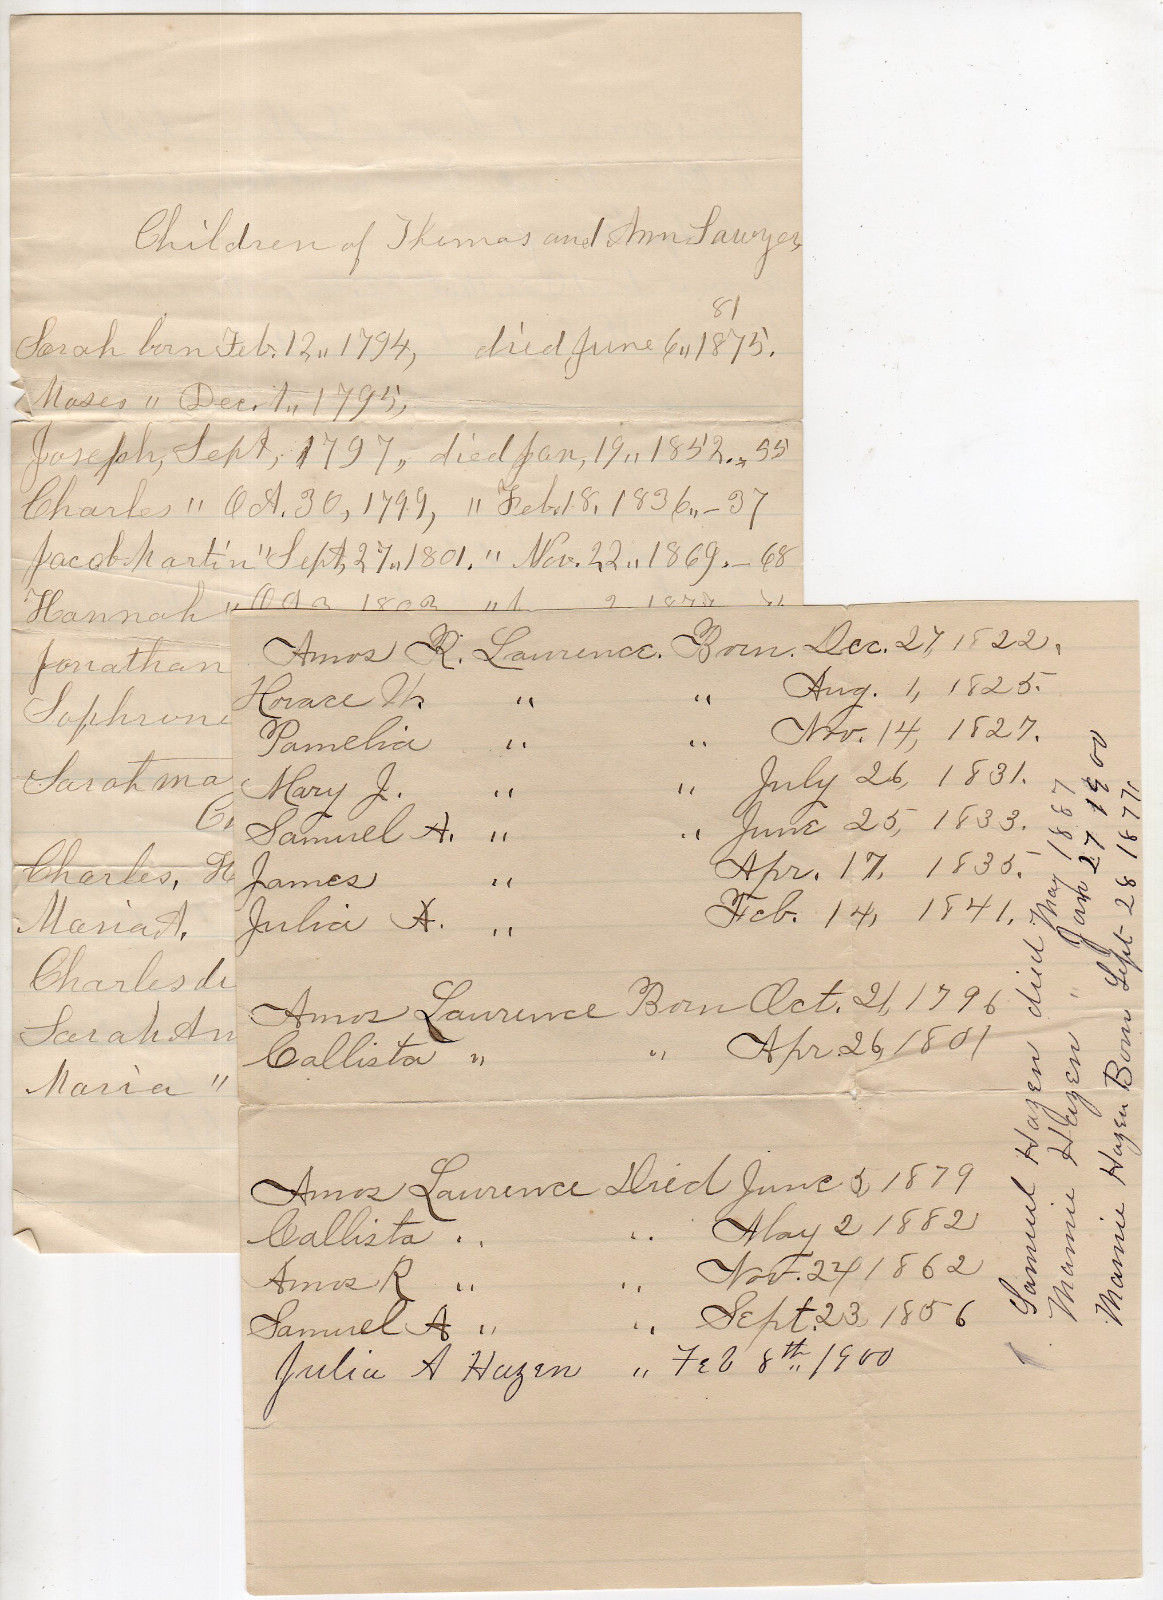 Children of Thomas and Ann Sawyer
81
Sarah born Feb. 12,, 1794, died June 6,, 1875.
Moses " Dec. 1,, 1795,
Joseph, Sept, 1797,, died Jan, 19,, 1852.,, 55
Charles " Oct. 30, 1799, " Feb. 18, 1836,, - 37
Jacob Martin " Sept, 27,, 1801. " Nov. 22,, 1869. - 68
Hannah "
Jonathan
Sophron
Sarah ma
Charles, H
Maria A.
Charles
Sarah An
Maria "
Amos R. Lawrence. Born. Dec. 27, 1822.
Horace W. " " Aug. 1, 1825.
Pamelia " " Nov. 14, 1827.
Mary J. " " July 26, 1831.
Samuel A. " " June 25, 1833.
James " Apr. 17, 1835.
Julia A. " Feb. 14, 1841.
Amos Lawrence Born Oct. 21, 1796
Callista " " Apr. 26, 1801
Amos Lawrence Died June 5, 1879
Callista " " May 2 1882
Amos R " " Nov. 24 1862
Samuel A " " Sept. 23, 1856
Julia A Hazen " Feb 8th,, 1900
Samuel Hazen died May 1887
Mamie Hazen " Jan 27 1900
Mamie Hazen Born Sept 28 1877.